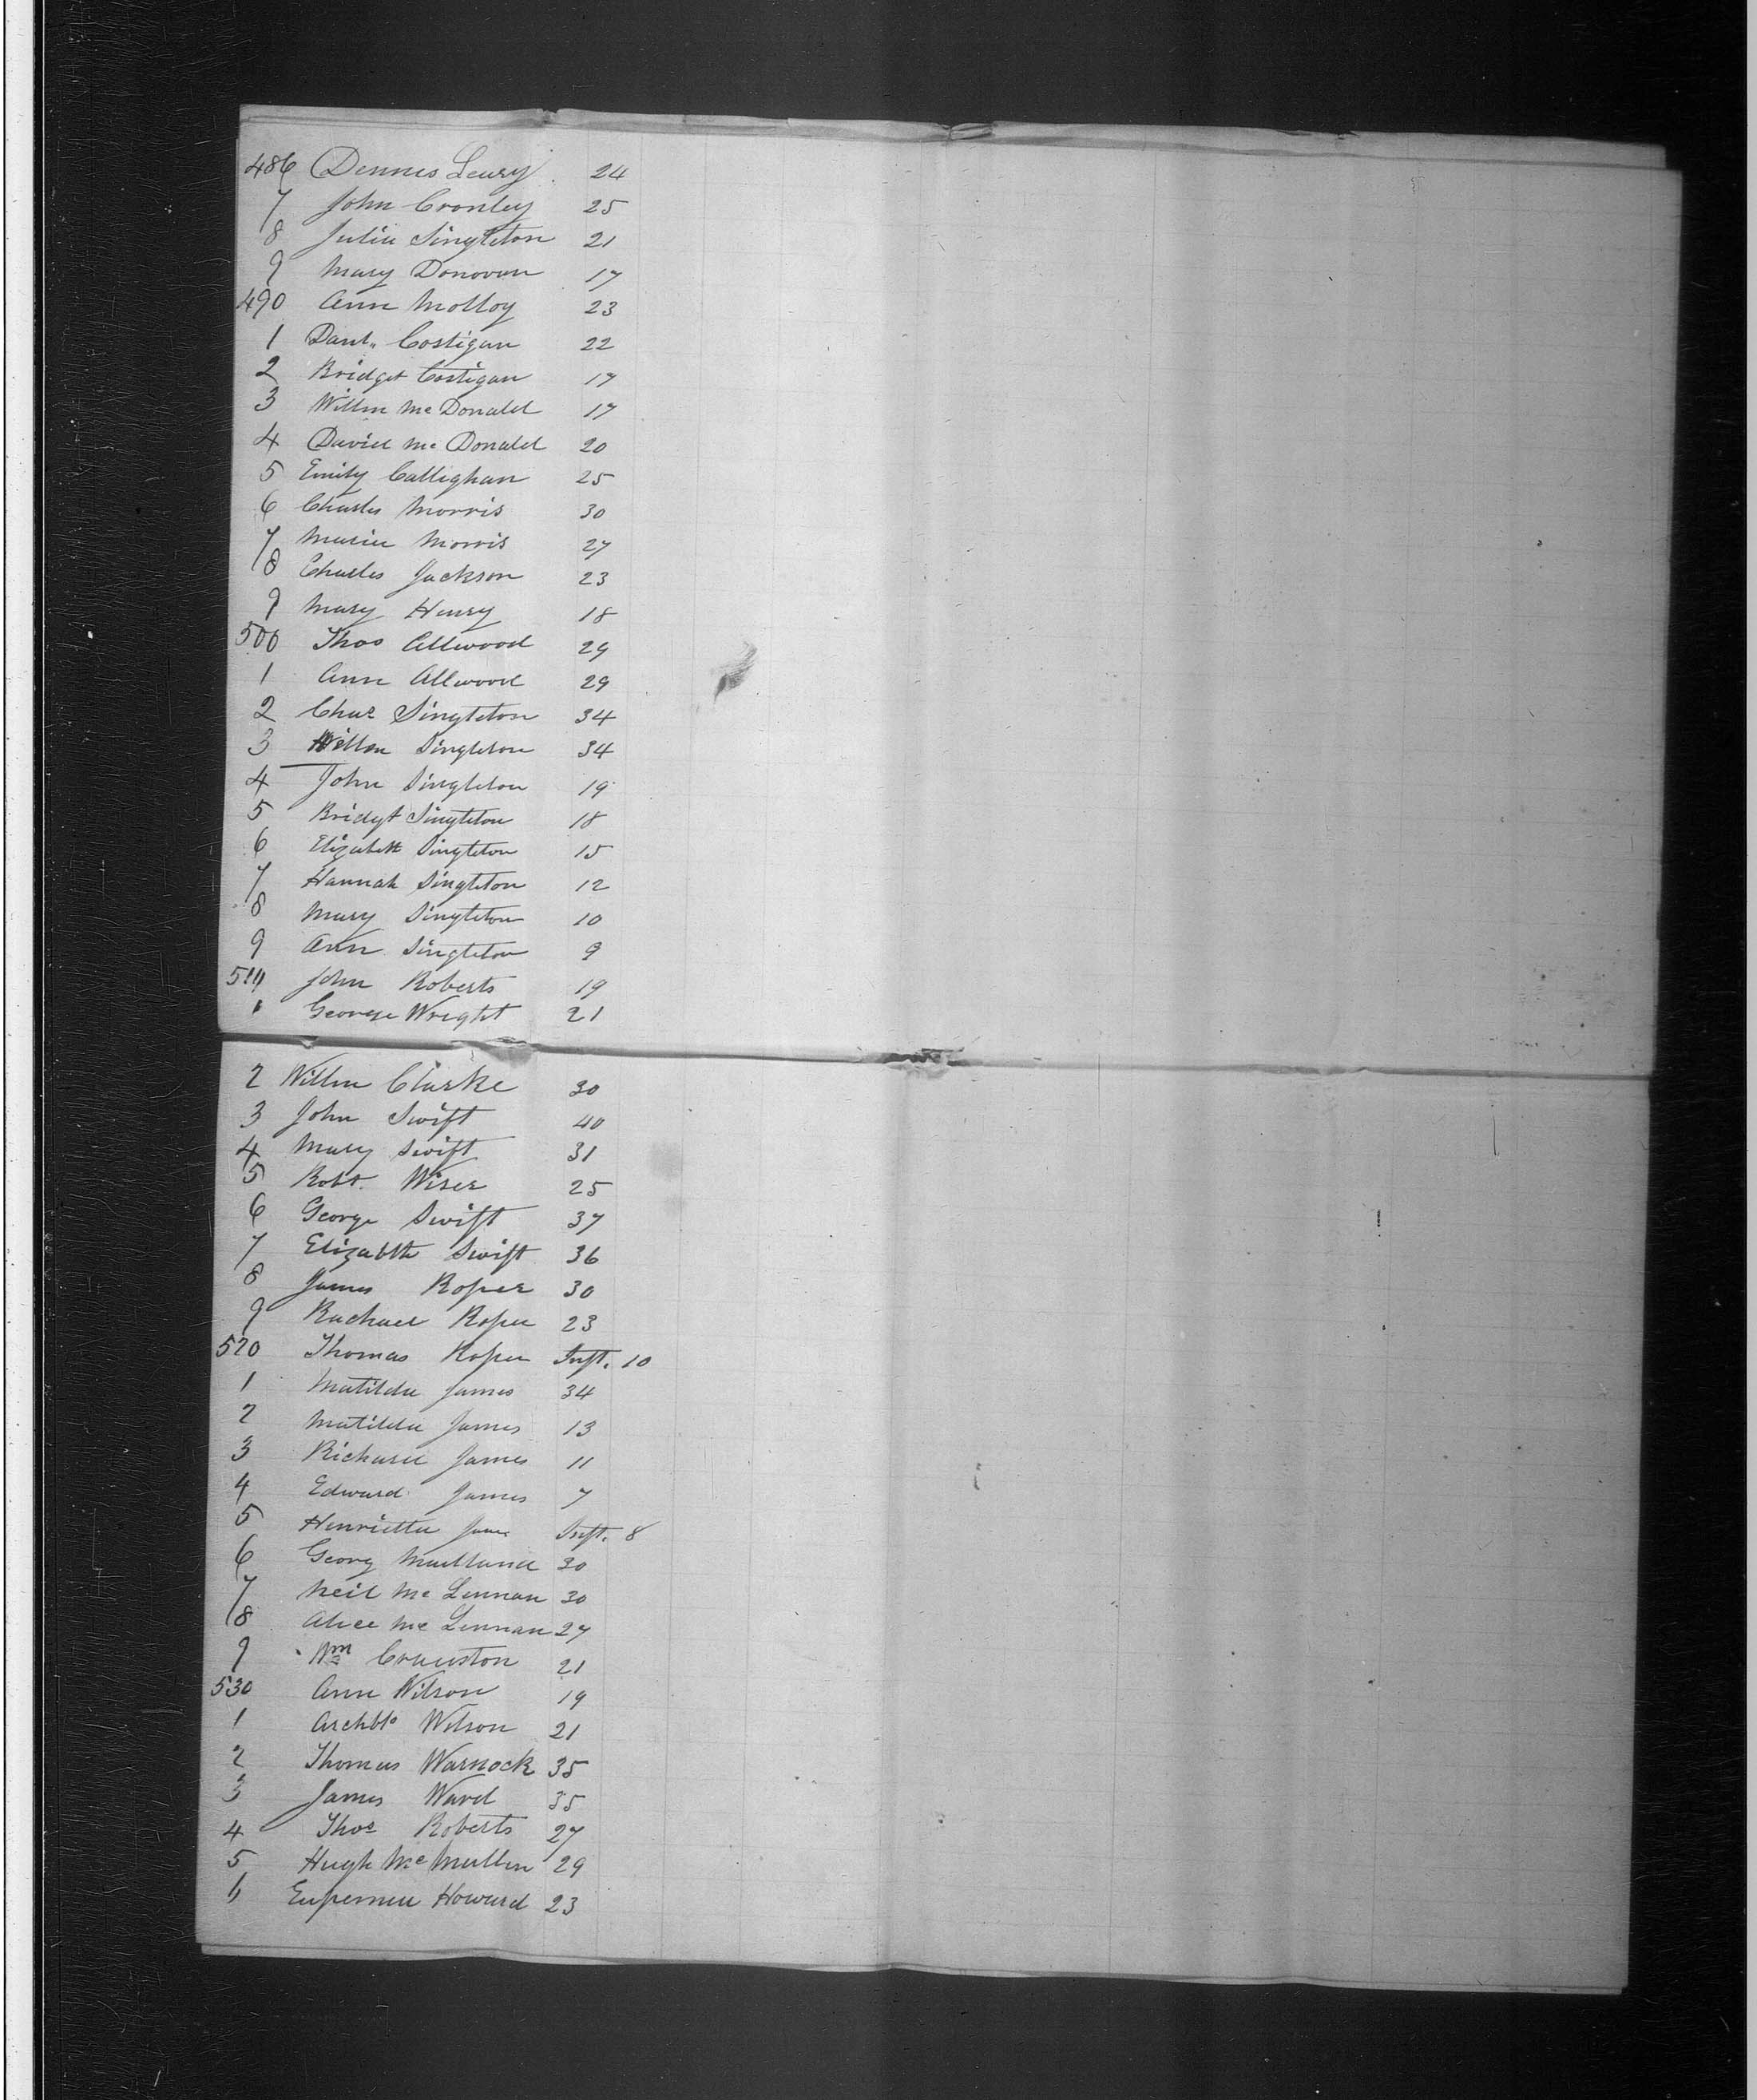 486 Dennis Leary 24
7 John Cronley 25
8 Julia Singleton 21
9 Mary Donovan 17
490 Ann Molloy 23
1 Danl. Costigan 22
2 Bridget Costigan 17
3 Willm McDonald 17
4 David McDonald 20
5 Emily Callighan 25
6 Charles Morris 30
7 Maria Morris 27
8 Charles Jackson 23
9 Mary Henry 18
500 Thos Allwood 29
1 Ann Allwood 29
2 Chas Singleton 34
3 Willm Singleton 34
4 John Singleton 19
5 Bridgt Singleton 18
6 Elizabeth Singleton 15
7 Hannah Singleton 12
8 Mary Singleton 10
9 Ann Singleton 9
510 John Roberts 19
1 George Wright 21
2 Willm Clarke 30
3 John Swift 40
4 Mary Swift 31
5 Robt. Wiser 25
6 George Swift 37
7 Elizabth Swift 36
8 James Roper 30
9 Rachael Roper 23
520 Thomas Roper Inft. 10
1 Matilda James 34
2 Matilda James 13
3 Richard James 11
4 Edward James 7
5 Henrietta James Inft. 8
6 Georg Maitland 30
7 Neil McLennan 30
8 Alice McLennan 27
9 Wm Cranston 21
530 Ann Wilson 19
1 Archbd Wilson 21
2 Thomas Warnock 35
3 James Ward 35
4 Thos Roberts 27
5 Hugh McMullen 29
6 Eupemea Howard 23